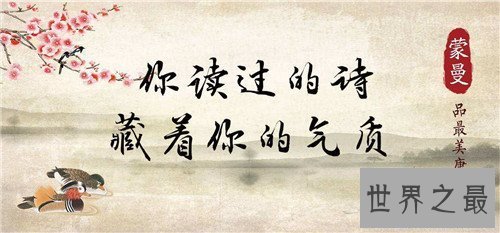 你读过的诗
藏着你的气质
蒙曼
品最美唐
世界之最